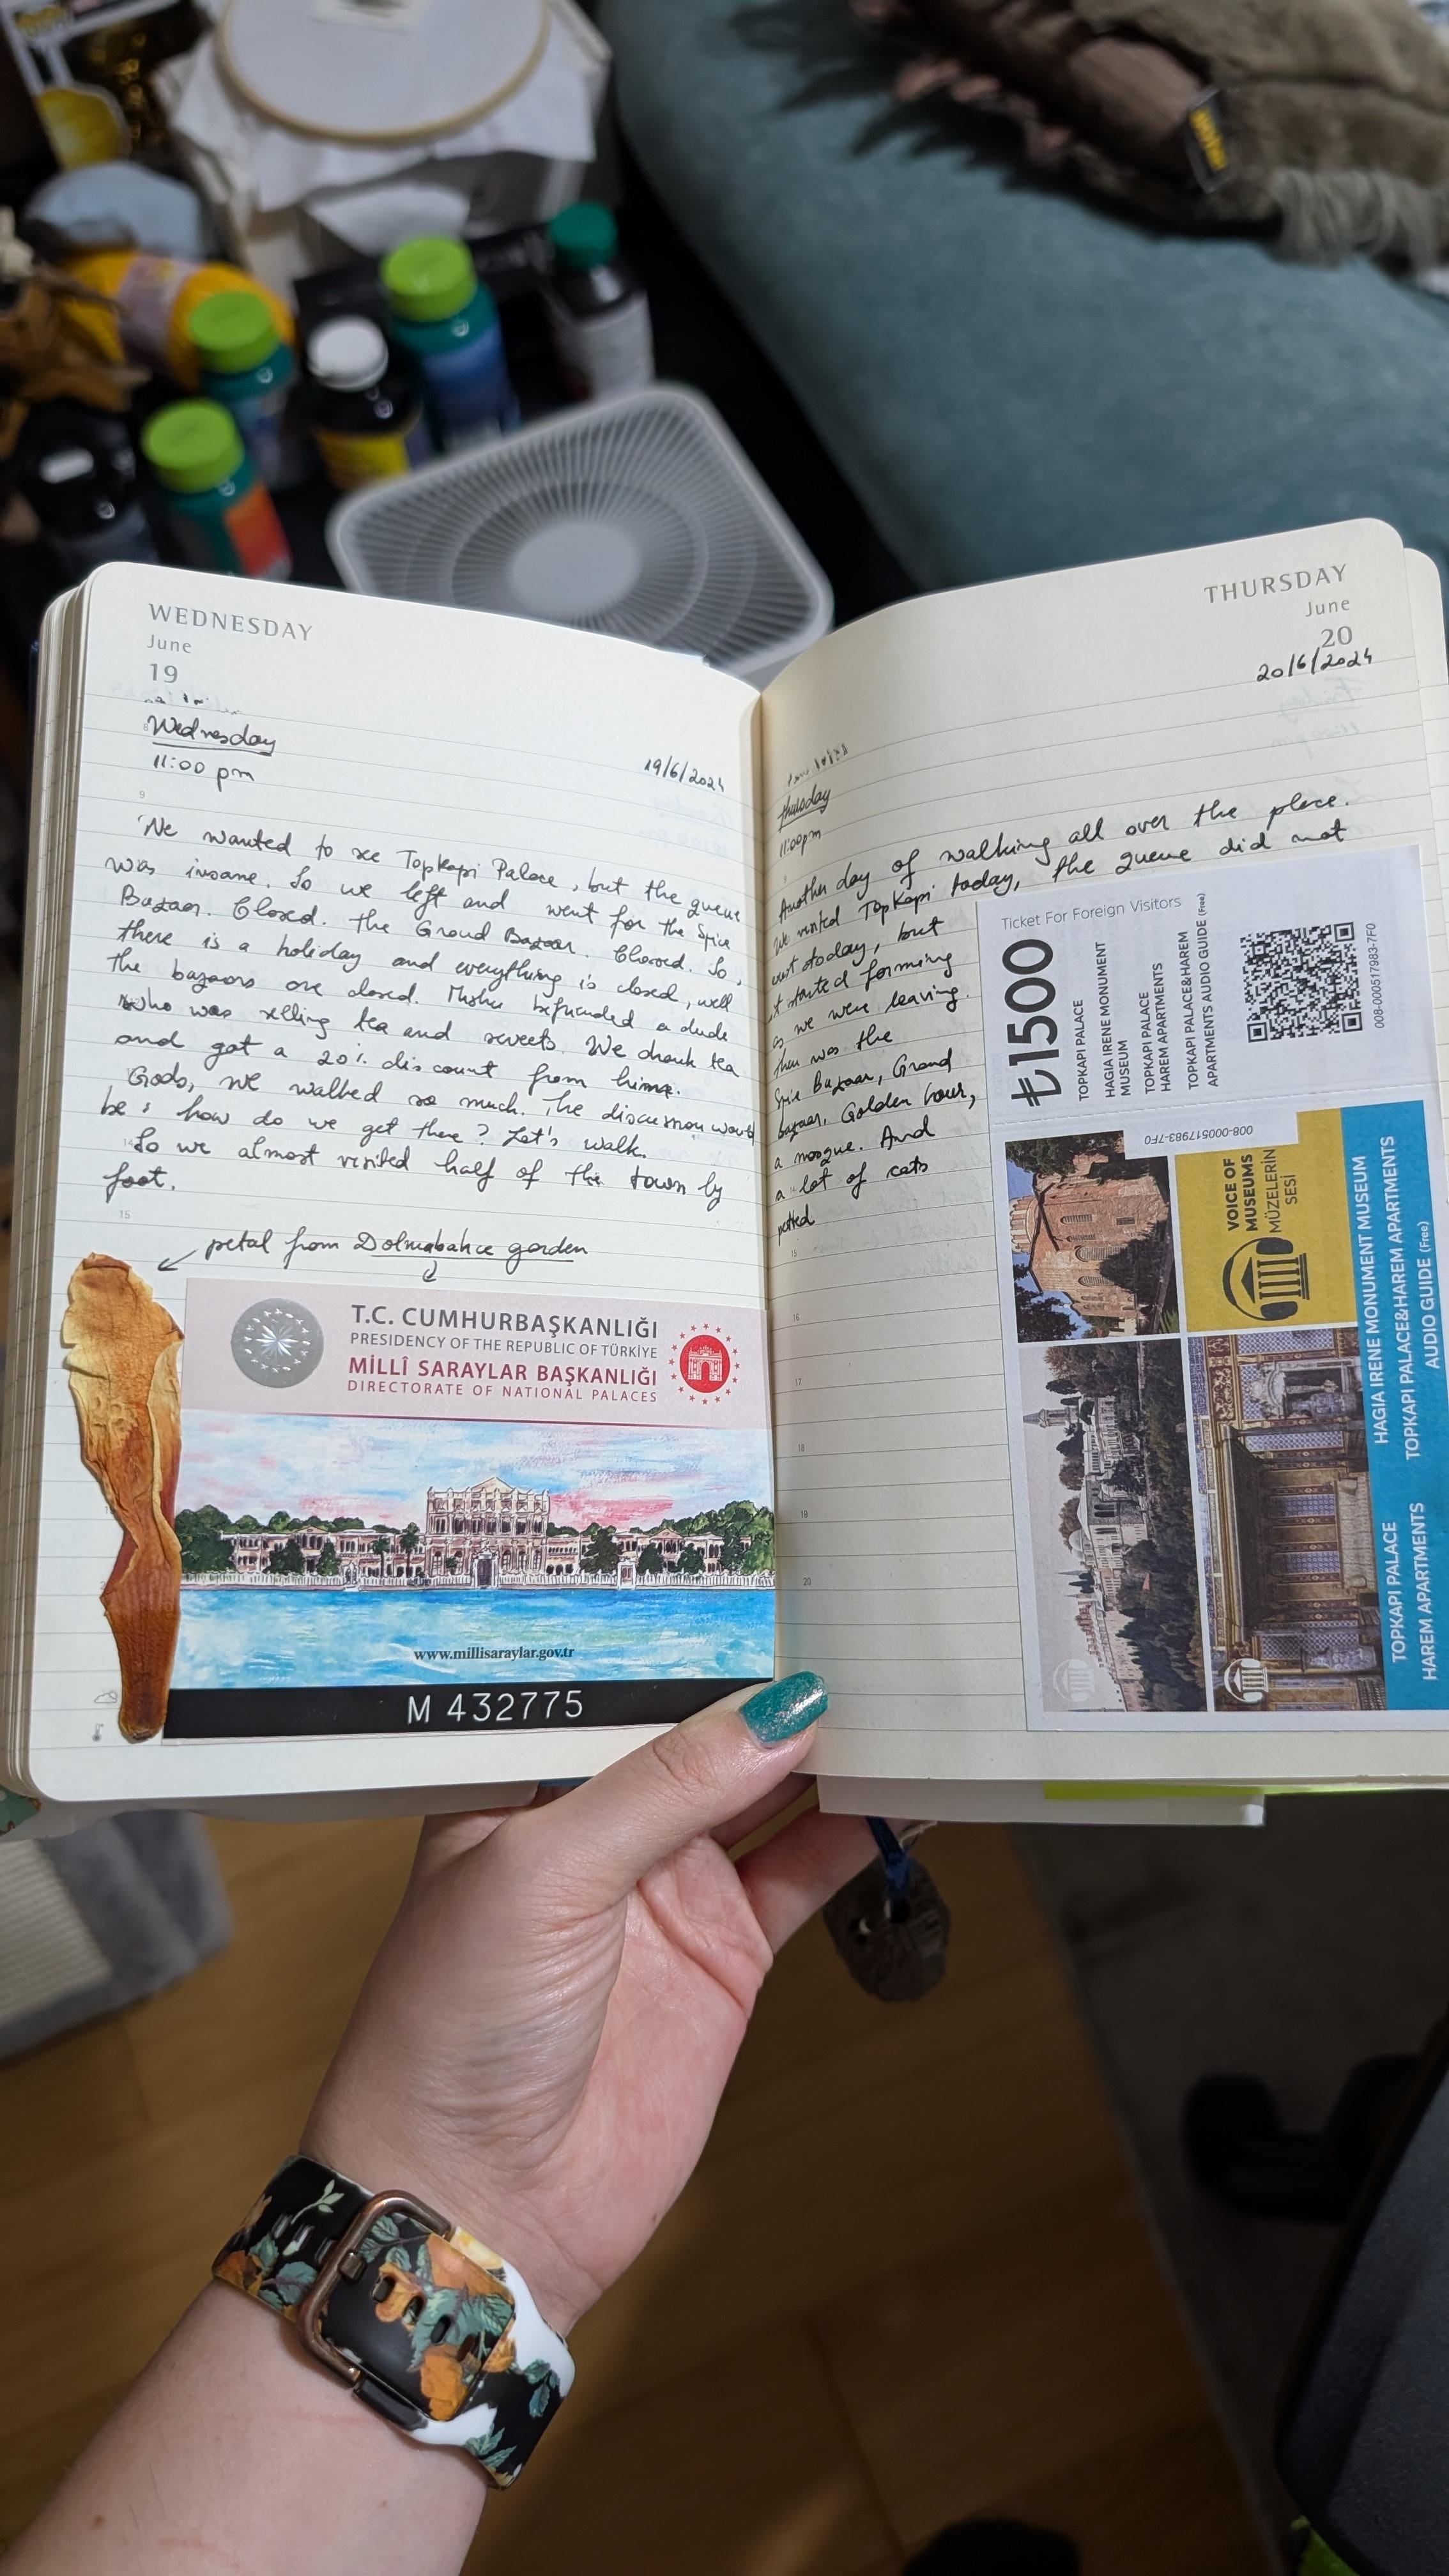 WEDNESDAY
June
19
Wednesday
11:00 pm
19/6/2024
We wanted to see Topkapi Palace, but the queue
was insane. So we left and went for the Spice
Bazaar. Closed. The Grand Bazaar. Closed. So,
there is a holiday and everything is closed, well
the bazaars are closed. befriended a dude
who was selling tea and sweets. We drank tea
and got a 20% discount from him.
Gods, we walked so much. The discussion would
be: how do we get there? Let's walk.
So we almost visited half of the town by
foot.
petal from Dolmabahce garden
T.C. CUMHURBAŞKANLIĞI
PRESIDENCY OF THE REPUBLIC OF TÜRKİYE
MİLLÎ SARAYLAR BAŞKANLIĞI
DIRECTORATE OF NATIONAL PALACES
www.millisaraylar.gov.tr
M 432775
THURSDAY
June
20
20/6/2024
thursday
11:00pm
Another day of walking all over the place.
We visited Topkapi today, the queue did not
exist today, but
it started forming
as we were leaving.
then was the
Spice Bazaar, Grand
bazaar, Golden hour,
a mosque. And
a lot of cats
petted
Ticket For Foreign Visitors
₺1500
TOPKAPI PALACE
HAGIA IRENE MONUMENT
MUSEUM
TOPKAPI PALACE
HAREM APARTMENTS
TOPKAPI PALACE&HAREM
APARTMENTS AUDIO GUIDE (Free)
008-000517983-7F0
008-000517983-7F0
VOICE OF
MUSEUMS
MÜZELERİN
SESİ
TOPKAPI PALACE
HAREM APARTMENTS
HAGIA IRENE MONUMENT MUSEUM
TOPKAPI PALACE&HAREM APARTMENTS
AUDIO GUIDE (Free)